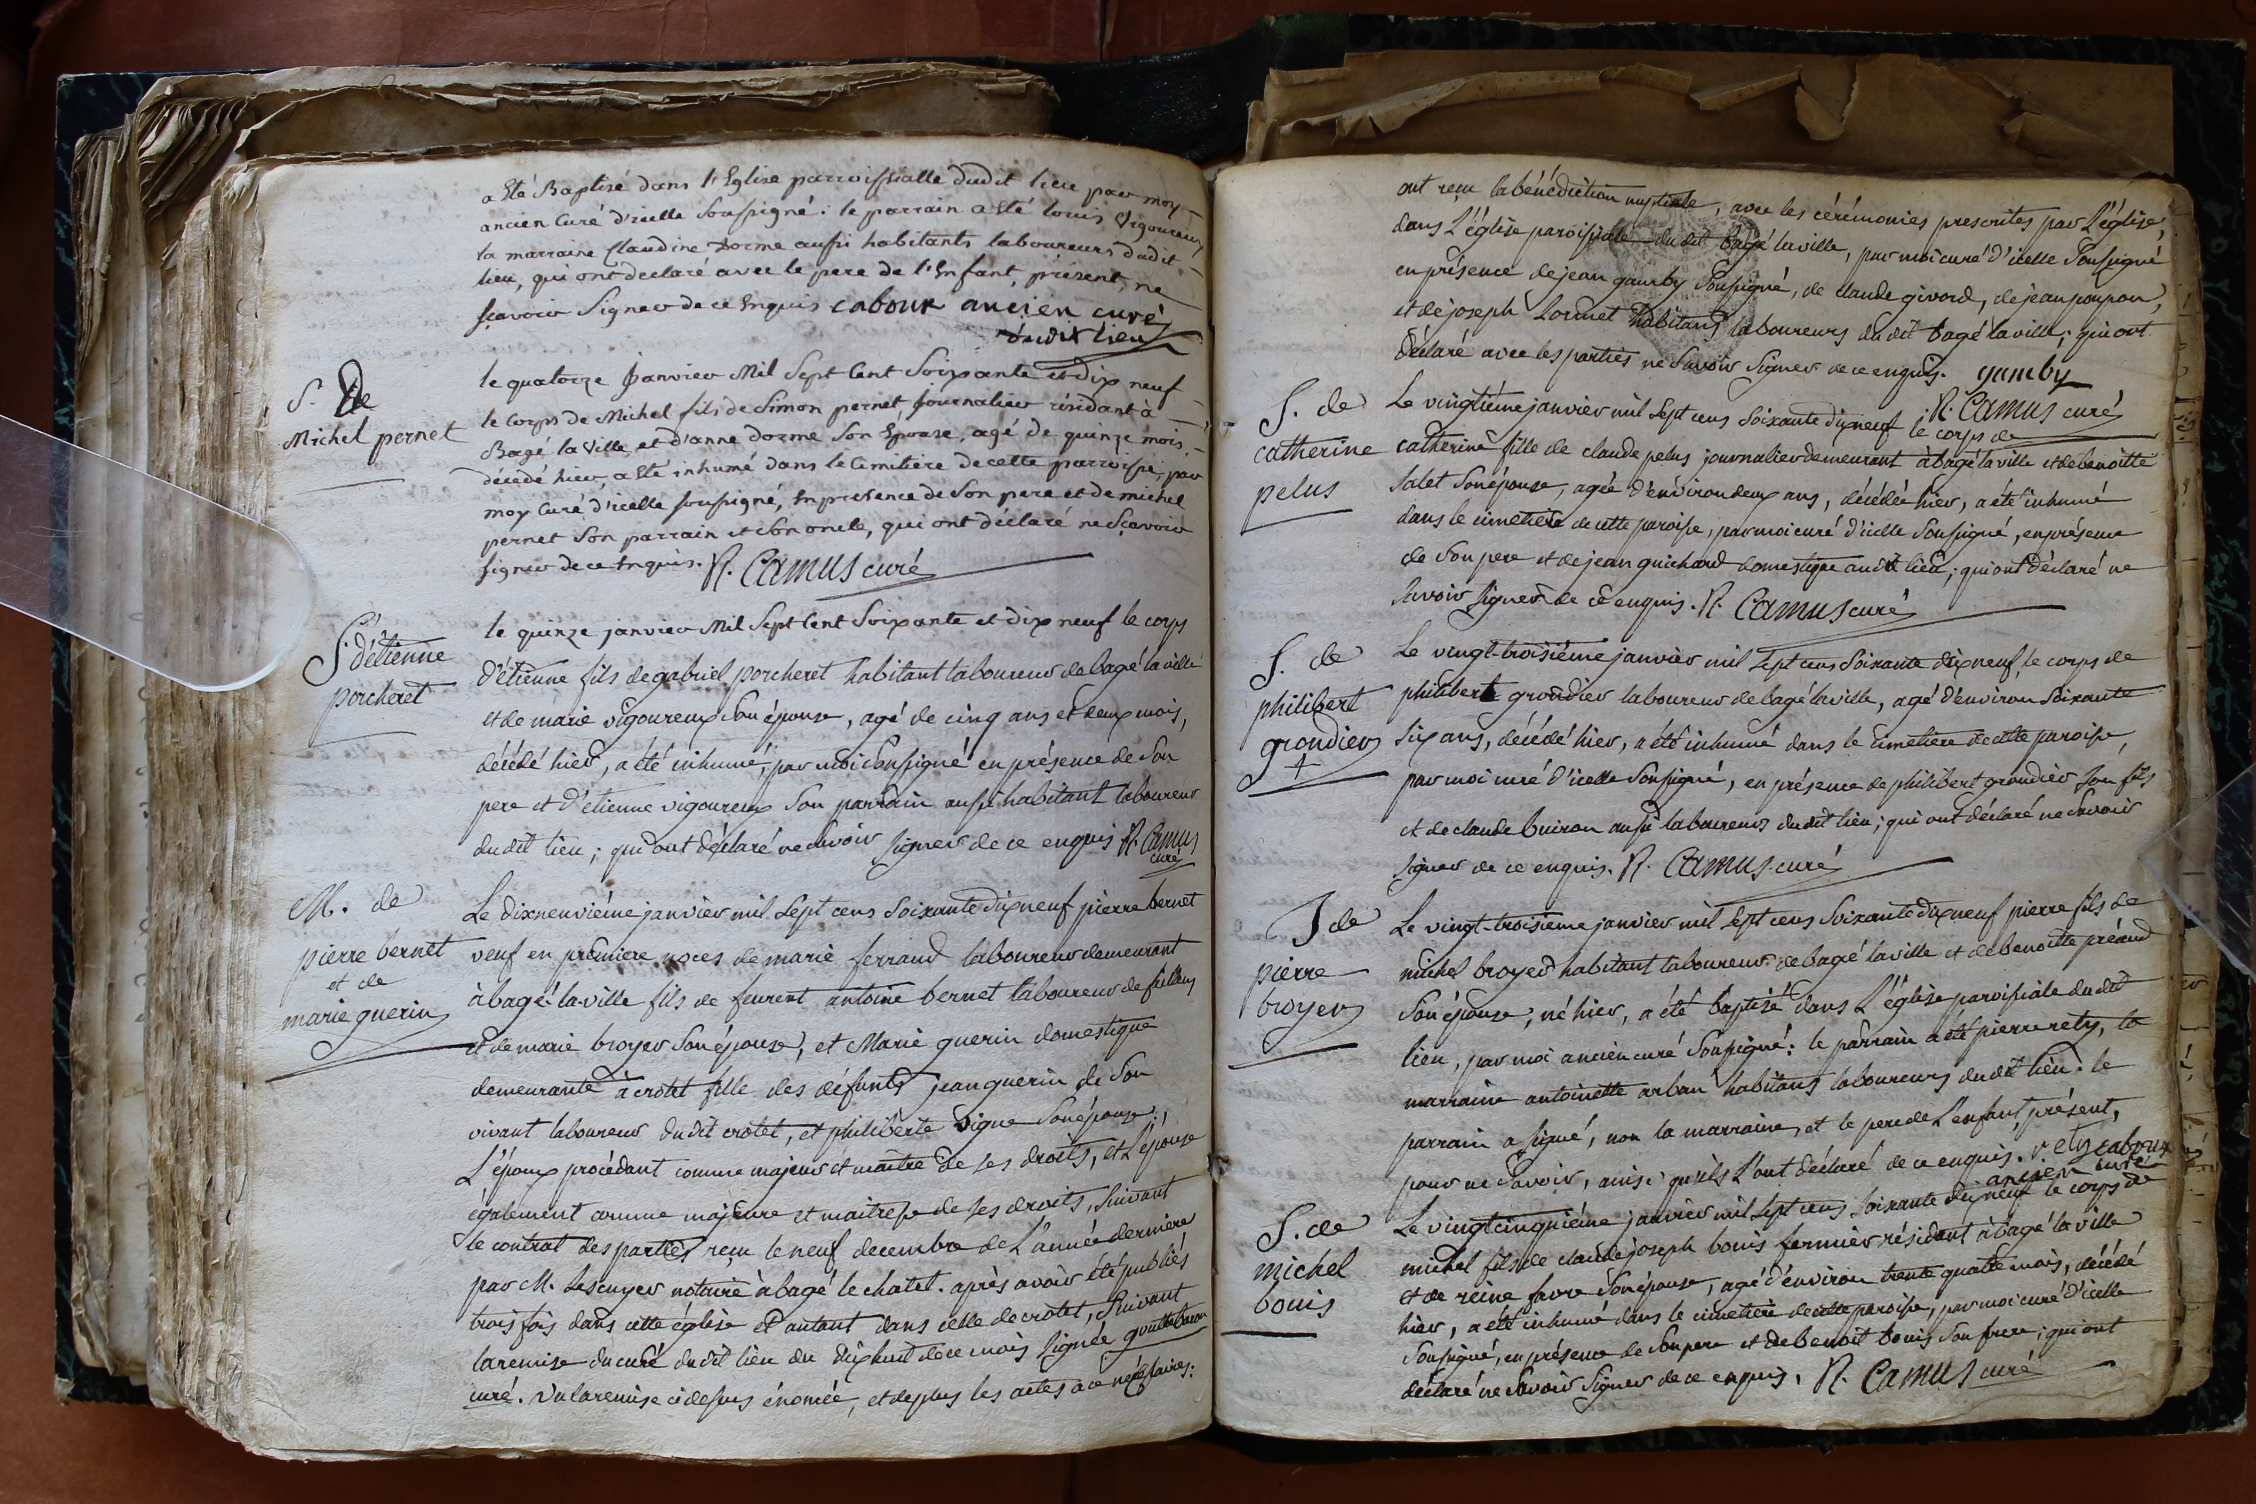 a Eté Baptisé dans l'Eglise parroissialle dudit lieu par moy
ancien Curé d'icelle Soussigné : le parrain a Eté louis Vigoureux
la marraine Claudine Dorme aussi habitants laboureurs dudit
lieu, qui ont declaré avec le pere de l'Enfant, présent, ne
sçavoir Signer de ce Enquis cabour ancien curé
dudit lieu
S. De
Michel pernet
le quatorze Janvier Mil Sept Cent Soixante et dix neuf
le Corps de Michel fils de Simon pernet, Journalier résidant à
Bagé la Ville, et d'anne dorme Son Epouse, agé de quinze mois,
décédé hier, a Eté inhumé dans le Cimitiere de cette parroisse, par
moy Curé d'icelle soussigné, En presence de Son pere et de michel
pernet Son parrain et Son oncle, qui ont déclaré ne Sçavoir
signer de ce Enquis. N. Camus curé
S. d'étienne
porcheret
le quinze janvier Mil Sept Cent Soixante et dix neuf le corps
d'étienne fils de gabriel porcheret habitant laboureur de bagé la ville
et de marie vigoureux Son épouse, agé de cinq ans et deux mois,
décédé hier, a été inhumé, par moi soussigné en présence de Son
pere et d'étienne vigoureux Son parrain aussi habitant laboureur
dudit lieu ; qui ont déclaré ne savoir signer de ce enquis N. Camus
curé
M. de
pierre bernet
et de
marie guerin
Le dixneuviéme janvier mil Sept cens Soixante dixneuf pierre bernet
veuf en premiere noces de marie ferrand laboureur demeurant
à bagé-la-ville fils de feurent antoine bernet laboureur de
et de marie broyer Son épouse, et Marie guerin domestique
demeurante à crotet fille des défunts jean guerin de Son
vivant laboureur dudit crotet, et philiberte vigne Son épouse ;
L'époux procédant comme majeur et maitre de Ses droits, et L'épouse
également comme majeure et maitresse de Ses droits, Suivant
le contrat des parties reçu le neuf decembre de L'année derniere
par M. Lescuyer notaire à bagé le chatel. après avoir été publiés
trois fois dans cette église et autant dans celle de crotet, Suivant
la remise du curé dudit lieu du dixhuit de ce mois Signée
curé. Vu la remise ci dessus énoncée, et de plus les actes à ce nécessaires :
ont reçu la bénédiction nuptiale, avec les cérémonies prescrites par L'église,
dans L'église paroissiale dudit bagé la ville, par moi curé d'icelle Soussigné
en présence de jean gamby Soussigné, de claude givord, de jean poupon,
et de joseph Lormet habitants laboureurs dudit bagé la ville ; qui ont
déclaré avec les parties ne Savoir Signer de ce enquis. gamby
N. Camus curé
S. de
catherine
pelus
Le vingtiéme janvier mil Sept cens Soixante dixneuf le corps de
catherine fille de claude pelus journalier demeurant à bagé la ville et de benoitte
Salet Son épouse, agée d'environ deux ans, décédée hier, a été inhumé
dans le cimetiere de cette paroisse, par moi curé d'icelle Soussigné, en présence
de Son pere et de jean guichard domestique audit lieu ; qui ont déclaré ne
Savoir Signer de ce enquis. N. Camus curé
S. de
philibert
grondier
Le vingt-troisiéme janvier mil Sept cens Soixante dixneuf, le corps de
philibert grondier laboureur de bagé la ville, agé d'environ Soixante
Six ans, décédé hier, a été inhumé dans le cimetiere de cette paroisse,
par moi curé d'icelle Soussigné, en présence de philibert grondier Son fils
et de claude buiron aussi laboureurs dudit lieu ; qui ont déclaré ne Savoir
Signer de ce enquis. N. Camus curé
de
pierre
broyer
Le vingt-troisieme janvier mil Sept cens Soixante dixneuf pierre fils de
michel broyer habitant laboureur de bagé la ville et de benoitte préaud
Son épouse, né hier, a été baptisé dans L'église paroissiale dudit
lieu, par moi ancien curé Soussigné : le parrain a été pierre rety, la
marraine antoinette arban habitans laboureurs dudit lieu : le
parrain a signé, non la marraine, et le pere de L'enfant, présent,
pour ne Savoir, ainsi qu'ils L'ont déclaré de ce enquis. rety cabour
ancien curé
S. de
michel
bouis
Le vingtcinquiéme janvier mil Sept cens Soixante dixneuf le corps de
michel fils de claude joseph bouis fermier résidant à bagé la ville
et de reine favre Son épouse, agé d'environ trente quatre mois, décédé
hier, a été inhumé dans le cimetiere de cette paroisse, par moi curé d'icelle
Soussigné, en présence de Son pere et de benoit bouis Son frere ; qui ont
déclaré ne Savoir Signer de ce enquis. N. Camus curé